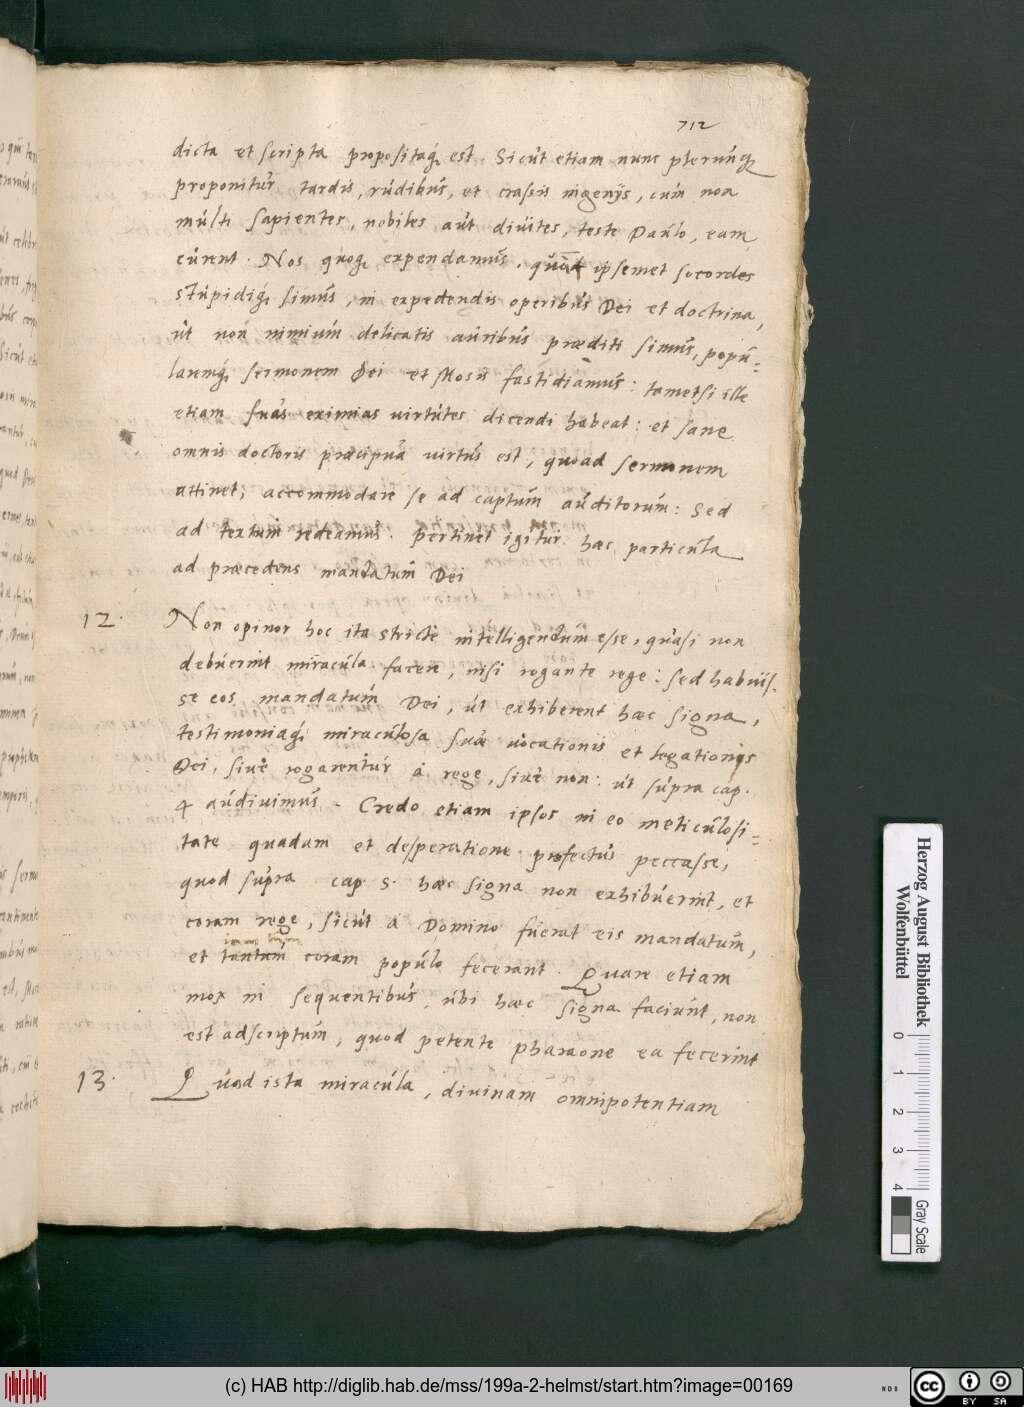 712
dicta et scripta propositaq́ est. Sicut etiam nunc plerunq́
proponitur tardis, rudibus, et crassis ingenijs, cum non
multi sapientes, nobiles aut diuites, teste Paulo, eam
curent. Nos quoq́ expendamus, quod ipsemet socordes
stupidiq́ simus, in expedendis operibus Dei et doctrina,
ut non nimium delicatis auribus præditi simus, popu=
laremq́ sermonem Dei et Mosis fastidiamus: tametsi ille
etiam suas eximias uirtutes dicendi habeat: et sane
omnis doctoris præcipua uirtus est, quoad sermonem
attinet, accommodare se ad captum auditorum: Sed
ad textum redeamus. Pertinet igitur hæc particula
ad præcedens mandatum Dei
12. Non opinor hoc ita stricte intelligendum esse, quasi non
debuerint miracula facere, nisi rogante rege: sed habuis-
se eos mandatum Dei, ut exhiberent hæc signa,
testimoniaq́ miraculosa suæ uocationis et legationis
Dei, siue rogarentur à rege, siue non: ut supra cap.
4 audiuimus. Credo etiam ipsos in eo meticulosi=
tate quadam et desperatione profectus peccasse,
quod supra cap 5. hæc signa non exhibuerint, et
coram rege, sicut à Domino fuerat eis mandatum,
et tantum coram populo fecerant. Quare etiam
mox in sequentibus, ubi hæc signa faciunt, non
est adscriptum, quod petente pharaone ea fecerint
13. Quod ista miracula, diuinam omnipotentiam
Herzog August Bibliothek
Wolfenbüttel
0 1 2 3 4
Gray Scale
(c) HAB http://diglib.hab.de/mss/199a-2-helmst/start.htm?image=00169
cc BY SA